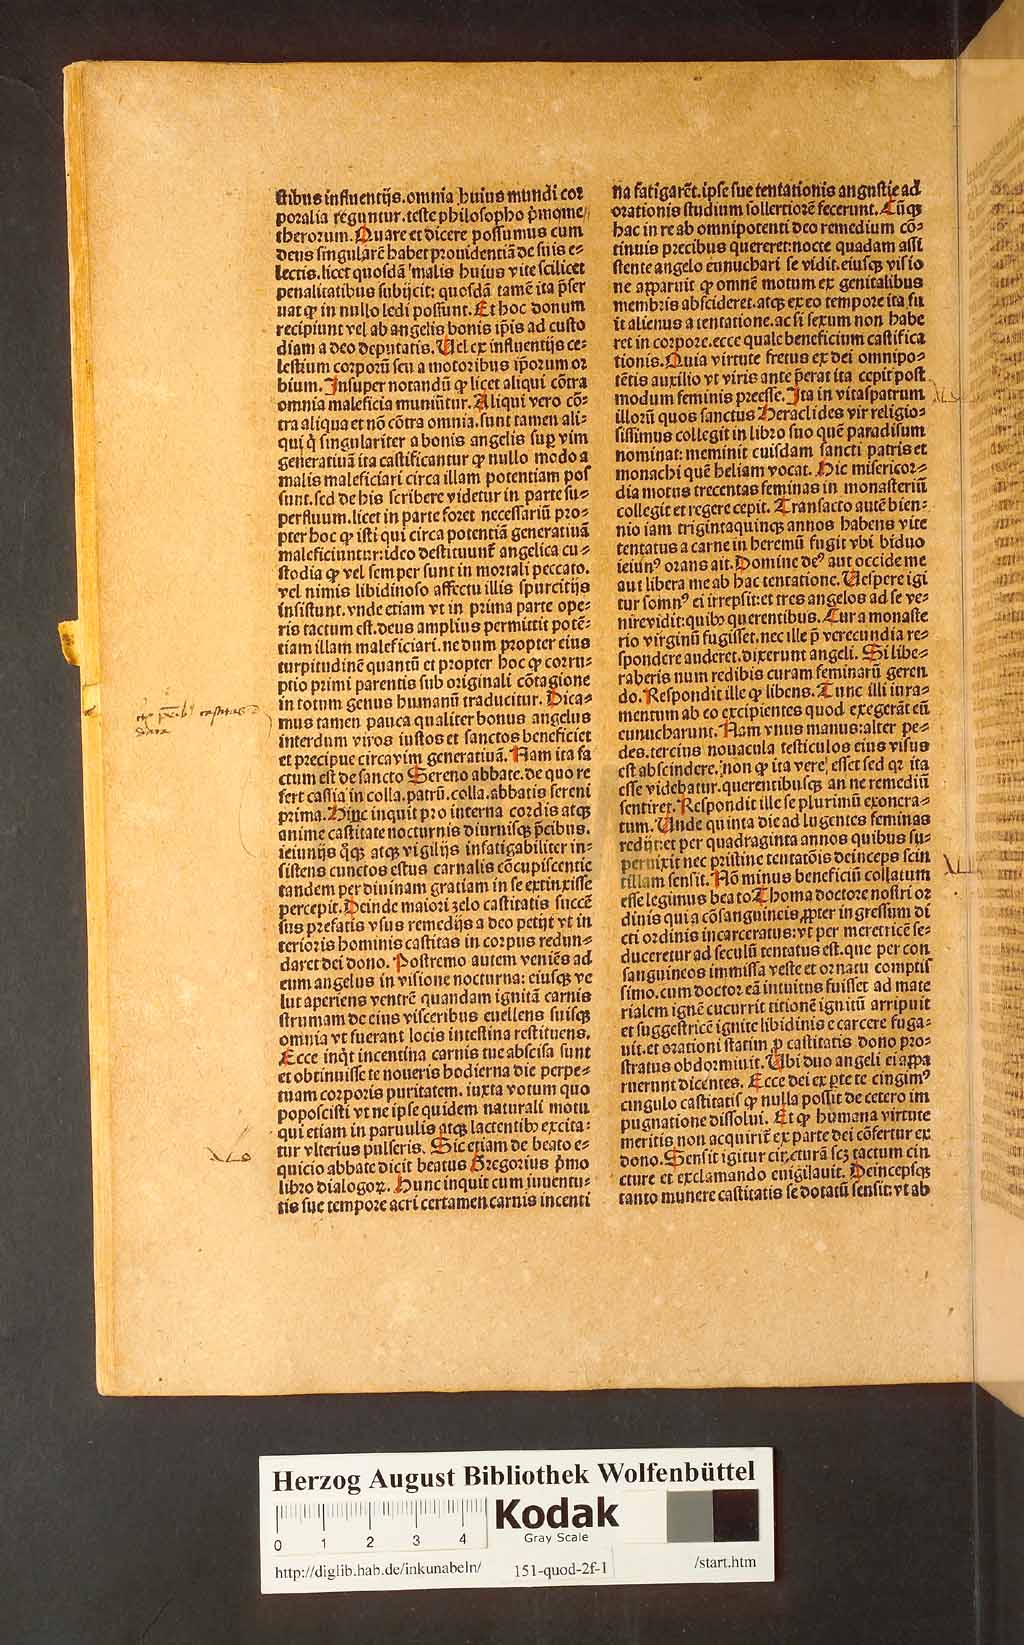 stibus influentijs. omnia huius mundi cor
poralia reguntur. teste philosopho p̄mo me//
therorum. Quare et dicere possumus cum
deus singularē habet prouidentiā de suis e⸗
lectis. licet quosdā malis huius vite scilicet
penalitatibus subijcit: quosdā tamē ita p̄ser
uat ꝙ in nullo ledi possunt. Et hoc donum
recipiunt vel ab angelis bonis ip̄is ad custo
diam a deo deputatis. Uel ex influentijs ce⸗
lestium corporū seu a motoribus ip̄orum or
bium. Insuper notandū ꝙ licet aliqui cōtra
omnia maleficia muniūtur. Aliqui vero cō⸗
tra aliqua et nō cōtra omnia. sunt tamen ali⸗
qui q̇ singulariter a bonis angelis suꝑ vim
generatiuā ita castificantur ꝙ nullo modo a
malis maleficiari circa illam potentiam pos
sunt. sed de his scribere videtur in parte su⸗
perfluum. licet in parte foret necessariū pro⸗
pter hoc ꝙ isti qui circa potentiā generatiuā
maleficiuntur: ideo destituunt᷑ angelica cu⸗
stodia ꝙ vel semper sunt in mortali peccato.
vel nimis libidinoso affectu illis spurcitijs
insistunt. vnde etiam vt in prima parte ope⸗
ris tactum est. deus amplius permittit potē⸗
tiam illam maleficiari. ne dum propter eius
turpitudinē quantū et propter hoc ꝙ corru⸗
ptio primi parentis sub originali cōtagione
in totum genus humanū traducitur. Dica⸗
mus tamen pauca qualiter bonus angelus
interdum viros iustos et sanctos beneficiet
et precipue circa vim generatiuā. Nam ita fa
ctum est de sancto Sereno abbate. de quo re
fert cassia in colla. patrū. colla. abbatis sereni
prima. Hinc inquit pro interna cordis atqꝫ
anime castitate nocturnis diurnisqꝫ p̄cibus.
ieiunijs q̇qꝫ atqꝫ vigilijs infatigabiliter in⸗
sistens cunctos estus carnalis cōcupiscentie
tandem per diuinam gratiam in se extinxisse
percepit. Deinde maiori zelo castitatis succē
sus prefatis vsus remedijs a deo petijt vt in
terioris hominis castitas in corpus redun⸗
daret dei dono. Postremo autem veniēs ad
eum angelus in visione nocturna: eiusqꝫ ve
lut aperiens ventrē quandam ignitā carnis
strumam de eius visceribus euellens suisqꝫ
omnia vt fuerant locis intestina restituens.
Ecce inq̇t incentina carnis tue abscisa sunt
et obtinuisse te noueris hodierna die perpe⸗
tuam corporis puritatem. iuxta votum quo
poposcisti vt ne ipse quidem naturali motu
qui etiam in paruulis atqꝫ lactentibꝰ excita⸗
tur vlterius pulseris. Sic etiam de beato e⸗
quicio abbate dicit beatus Gregorius p̄mo
libro dialogoꝝ. Hunc inquit cum iuuentu⸗
tis sue tempore acri certamen carnis incenti
na fatigarēt. ipse sue tentationis angustie ad
orationis studium sollertiorē fecerunt. Cūqꝫ
hac in re ab omnipotenti deo remedium cō⸗
tinuis precibus quereret: nocte quadam assi
stente angelo eunuchari se vidit. eiusqꝫ visio
ne apparuit ꝙ omnē motum ex genitalibus
membris abscideret. atqꝫ ex eo tempore ita fu
it alienus a tentatione. ac si sexum non habe
ret in corpore. ecce quale beneficium castifica
tionis. Quia virtute fretus ex dei omnipo⸗
tētis auxilio vt viris ante p̄erat ita cepit post
modum feminis preesse. Ita in vitaspatrum
illorū quos sanctus Heraclides vir religio⸗
sissimus collegit in libro suo quē paradisum
nominat: meminit cuisdam sancti patris et
monachi quē heliam vocat. Hic misericor⸗
dia motus trecentas feminas in monasteriū
collegit et regere cepit. Transacto autē bien⸗
nio iam trigintaquinqꝫ annos habens vite
tentatus a carne in heremū fugit vbi biduo
ieiunꝰ orans ait. Domine deꝰ aut occide me
aut libera me ab hac tentatione. Uespere igi
tur somnꝰ ei irrepsit: et tres angelos ad se ve⸗
nire vidit: quibꝰ querentibus. Cur a monaste
rio virginū fugisset. nec ille p̄ verecundia re⸗
spondere auderet. dixerunt angeli. Si libe⸗
raberis num redibis curam feminarū geren
do. Respondit ille ꝙ libens. Tunc illi iura⸗
mentum ab eo excipientes quod exegerāt eū
eunucharunt. Nam vnus manus: alter pe⸗
des. tercius nouacula testiculos eius visus
est abscindere. non ꝙ ita vere esset sed qꝛ ita
esse videbatur. querentibusqꝫ an ne remediū
sentiret. Respondit ille se plurimū exonera⸗
tum. Unde quinta die ad lugentes feminas
redijt: et per quadraginta annos quibus su⸗
peruixit nec pristine tentatōis deinceps scin
tillam sensit. Nō minus beneficiū collatum
esse legimus beato Thoma doctore nostri or
dinis qui a cōsanguineis ꝓpter ingressum di
cti ordinis incarceratus: vt per meretricē se⸗
duceretur ad seculū tentatus est. que per con
sanguineos immissa veste et ornatu comptis
simo. cum doctor eā intuitus fuisset ad mate
rialem ignē cucurrit titionē ignitū arripuit
et suggestricē ignite libidinis e carcere fuga⸗
uit. et orationi statim ꝓ castitatis dono pro⸗
stratus obdormiuit. Ubi duo angeli ei appa
ruerunt dicentes. Ecce dei ex ꝑte te cingimꝰ
cingulo castitatis ꝙ nulla possit de cetero im
pugnatione dissolui. Et ꝙ humana virtute
meritis non acquirit᷑ ex parte dei cōfertur ex
dono. Sensit igitur cīcturā scꝫ tactum cin
cture et exclamando euigilauit. Deincepsqꝫ
tanto munere castitatis se dotatū sensit: vt ab
Herzog August Bibliothek Wolfenbüttel
0 1 2 3 4
Kodak
Gray Scale
http://diglib.hab.de/inkunabeln/ 151-quod-2f-1 /start.htm